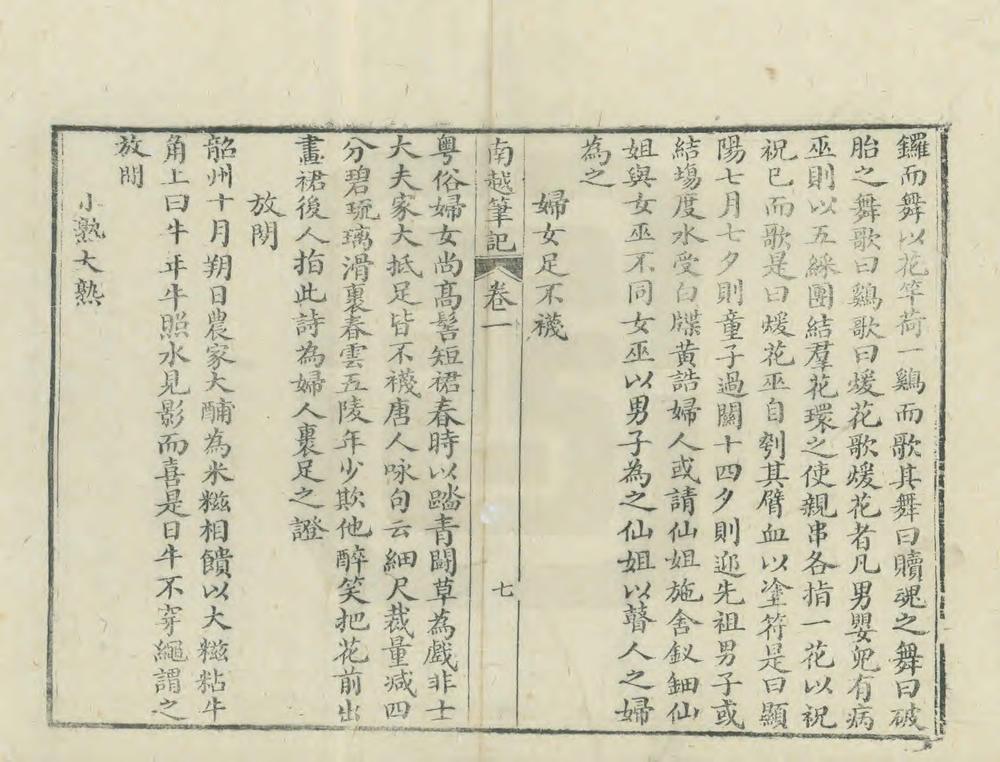 鑼而舞以花竿荷一鷄而歌其舞曰贖魂之舞曰破
胎之舞歌曰鷄歌曰煖花歌煖花者凡男嬰兒有病
巫則以五綵團結羣花環之使親串各指一花以祝
祝已而歌是曰煖花巫自刳其臂血以塗符是曰顯
陽七月七夕則童子過關十四夕則迎先祖男子或
結塲度水受白牒黃誥婦人或請仙姐施舍釵鈿仙
姐與女巫不同女巫以男子為之仙姐以瞽人之婦
為之
婦女足不襪
南越筆記
卷一
七
粵俗婦女尚高髻短裙春時以踏青鬪草為戲非士
大夫家大抵足皆不襪唐人咏句云細尺裁量減四
分碧琉璃滑裹春雲五陵年少欺他醉笑把花前出
畫裙後人指此詩為婦人裹足之證
放閒
韶州十月朔日農家大酺為米糍相饋以大糍粘牛
角上曰牛年牛照水見影而喜是日牛不穿繩謂之
放閒
小熟大熟